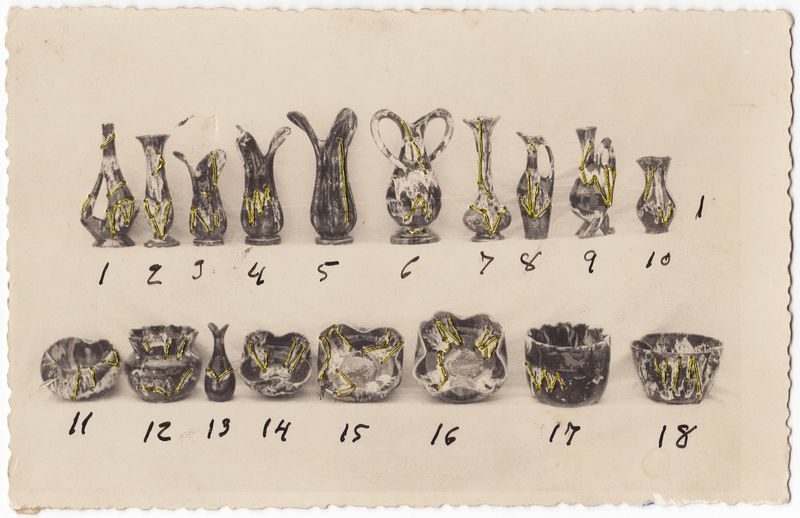 1 2 3 4 5 6 7 8 9 10 1
11 12 13 14 15 16 17 18